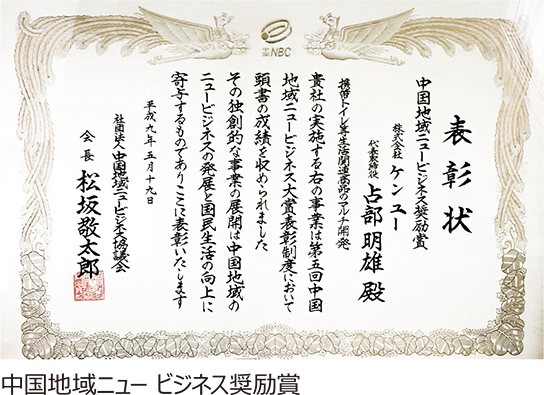 中国NBC
表彰状
中国地域ニュービジネス奨励賞
株式会社 ケンユー
代表取締役 占部明雄 殿
携帯トイレ等生活関連商品のマルチ開発
貴社の実施する右の事業は第五回中国
地域ニュービジネス大賞表彰制度において
頭書の成績を収められました
その独創的な事業の展開は中国地域の
ニュービジネスの発展と国民生活の向上に
寄与するものでありここに表彰いたします
平成九年五月十九日
社団法人中国地域ニュービジネス協議会
会長 松坂敬太郎
中国地域ニュー ビジネス奨励賞